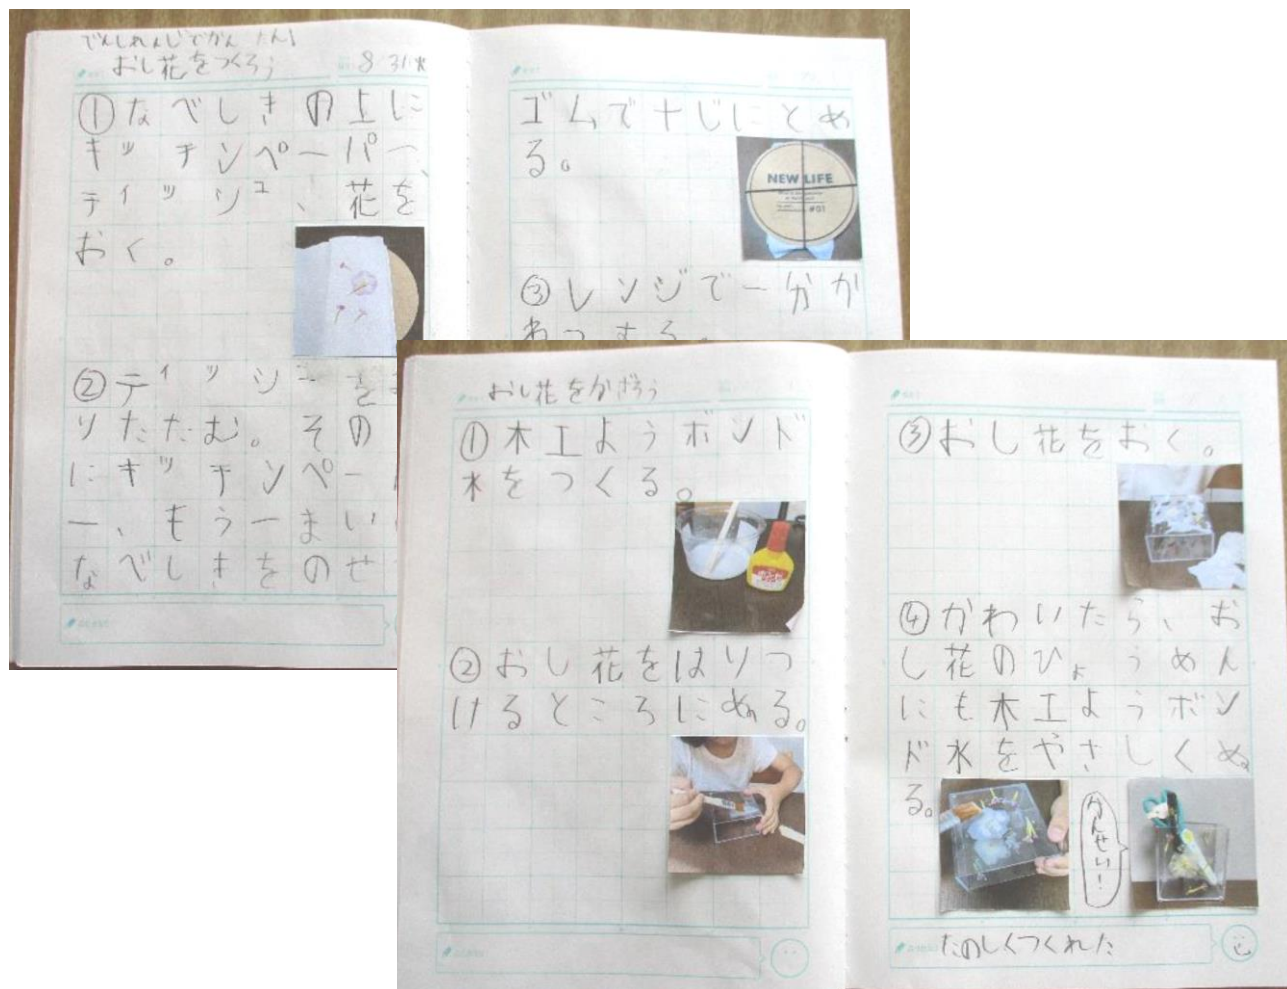 でんしれんじでかんたん!
おし花をつくろう
8/31火
①なべしきの上に
キッチンペーパー、
ティッシュ、花を
おく。
②ティッシュを
りたたむ。その
にキッチンペー
ー、もう一まい
なべしきをのせ
ゴムで十じにとめ
る。
NEW LIFE
#01
③レンジで一分か
ねつする。
おし花をかざろう
①木工ようボンド
水をつくる。
②おし花をはりつ
けるところにぬる。
③おし花をおく。
④かわいたら、お
し花のひょうめん
にも木工ようボン
ド水をやさしくぬ
る。
かんせい!
たのしくつくれた